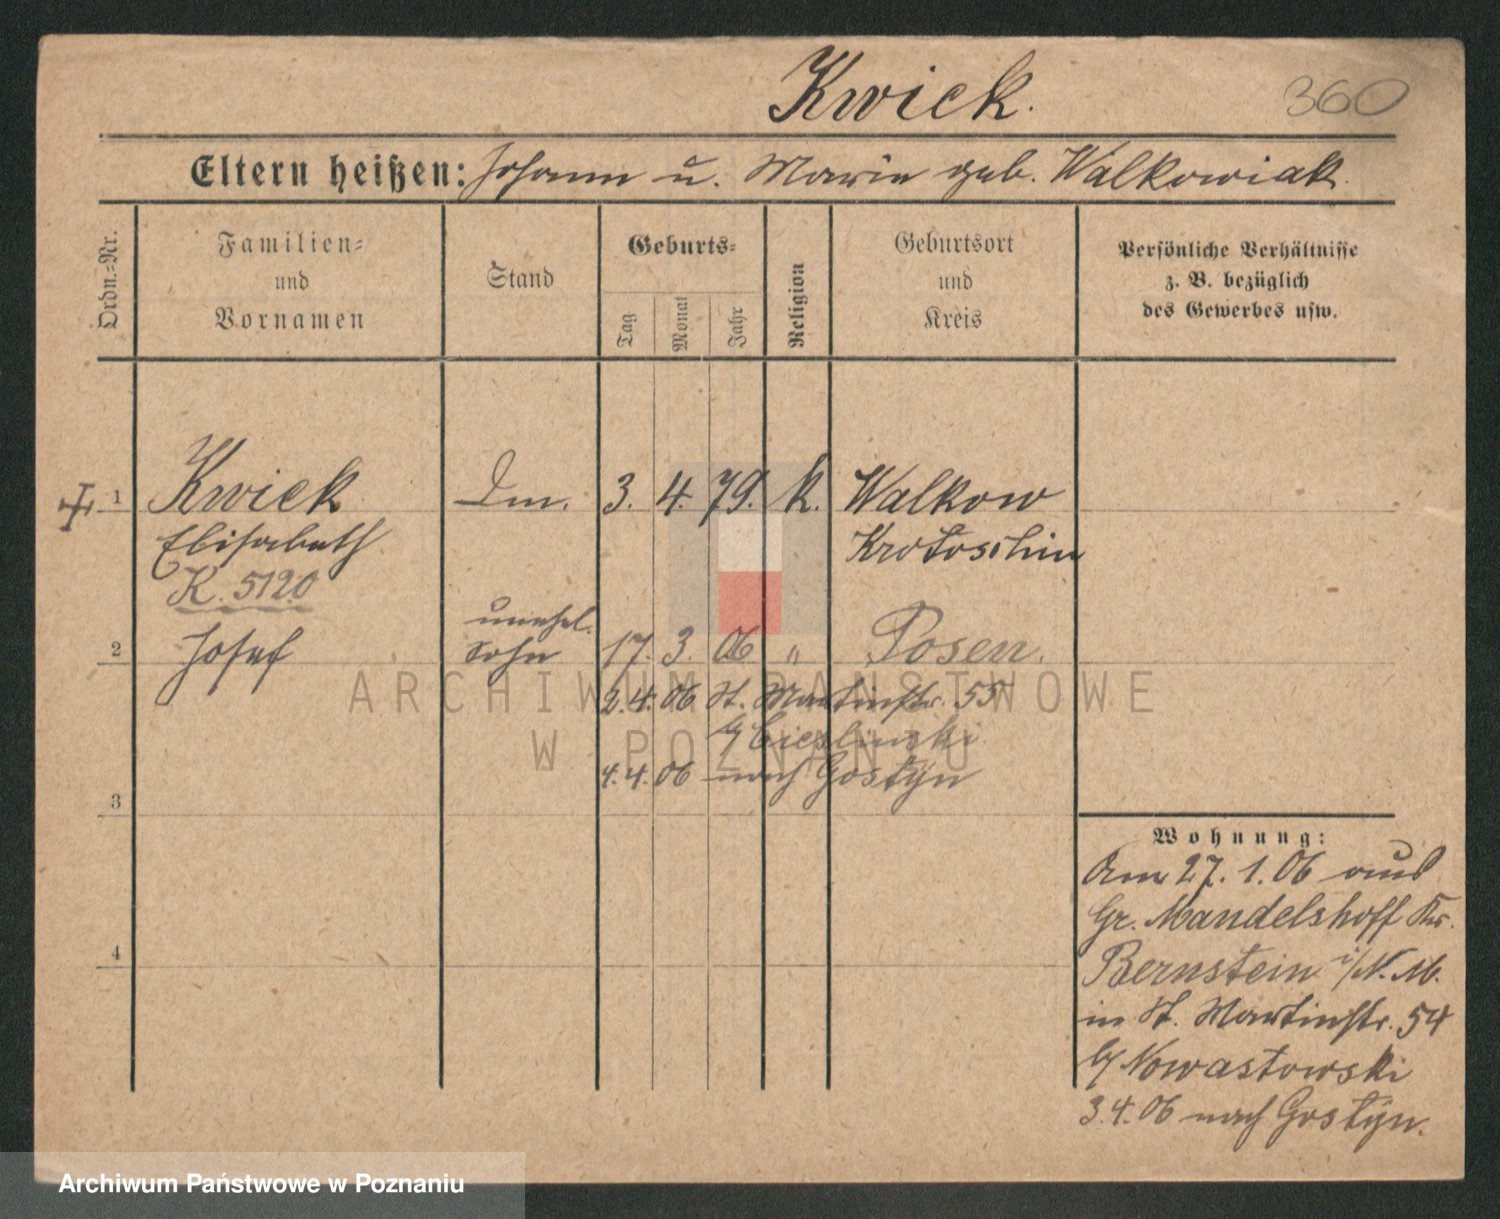 Kwiek.
360
Eltern heißen: Johann u. Marie geb. Walkowiak.
Ordn.-Nr.
Familien-
und
Vornamen
Stand
Geburts-
Tag
Monat
Jahr
Religion
Geburtsort
und
Kreis
Persönliche Verhältnisse
z. B. bezüglich
des Gewerbes usw.
1 Kwiek Dm. 3. 4. 79. k. Walkow
Elisabeth Krotoschin
K. 5120
unehel.
2 Josef Sohn 17. 3. 06 " Posen.
2.4.06 St. Martinstr. 55
b/ Cieslinski
4.4.06 nach Gostyn
3
4
Wohnung:
Am 27.1.06 aus
Gr. Mandelshoff Krs.
Bernstein i/N.M.
in St. Martinstr. 54
b/ Nowastowski
3.4.06 nach Gostyn.
ARCHIWUM PAŃSTWOWE
W POZNANIU
Archiwum Państwowe w Poznaniu